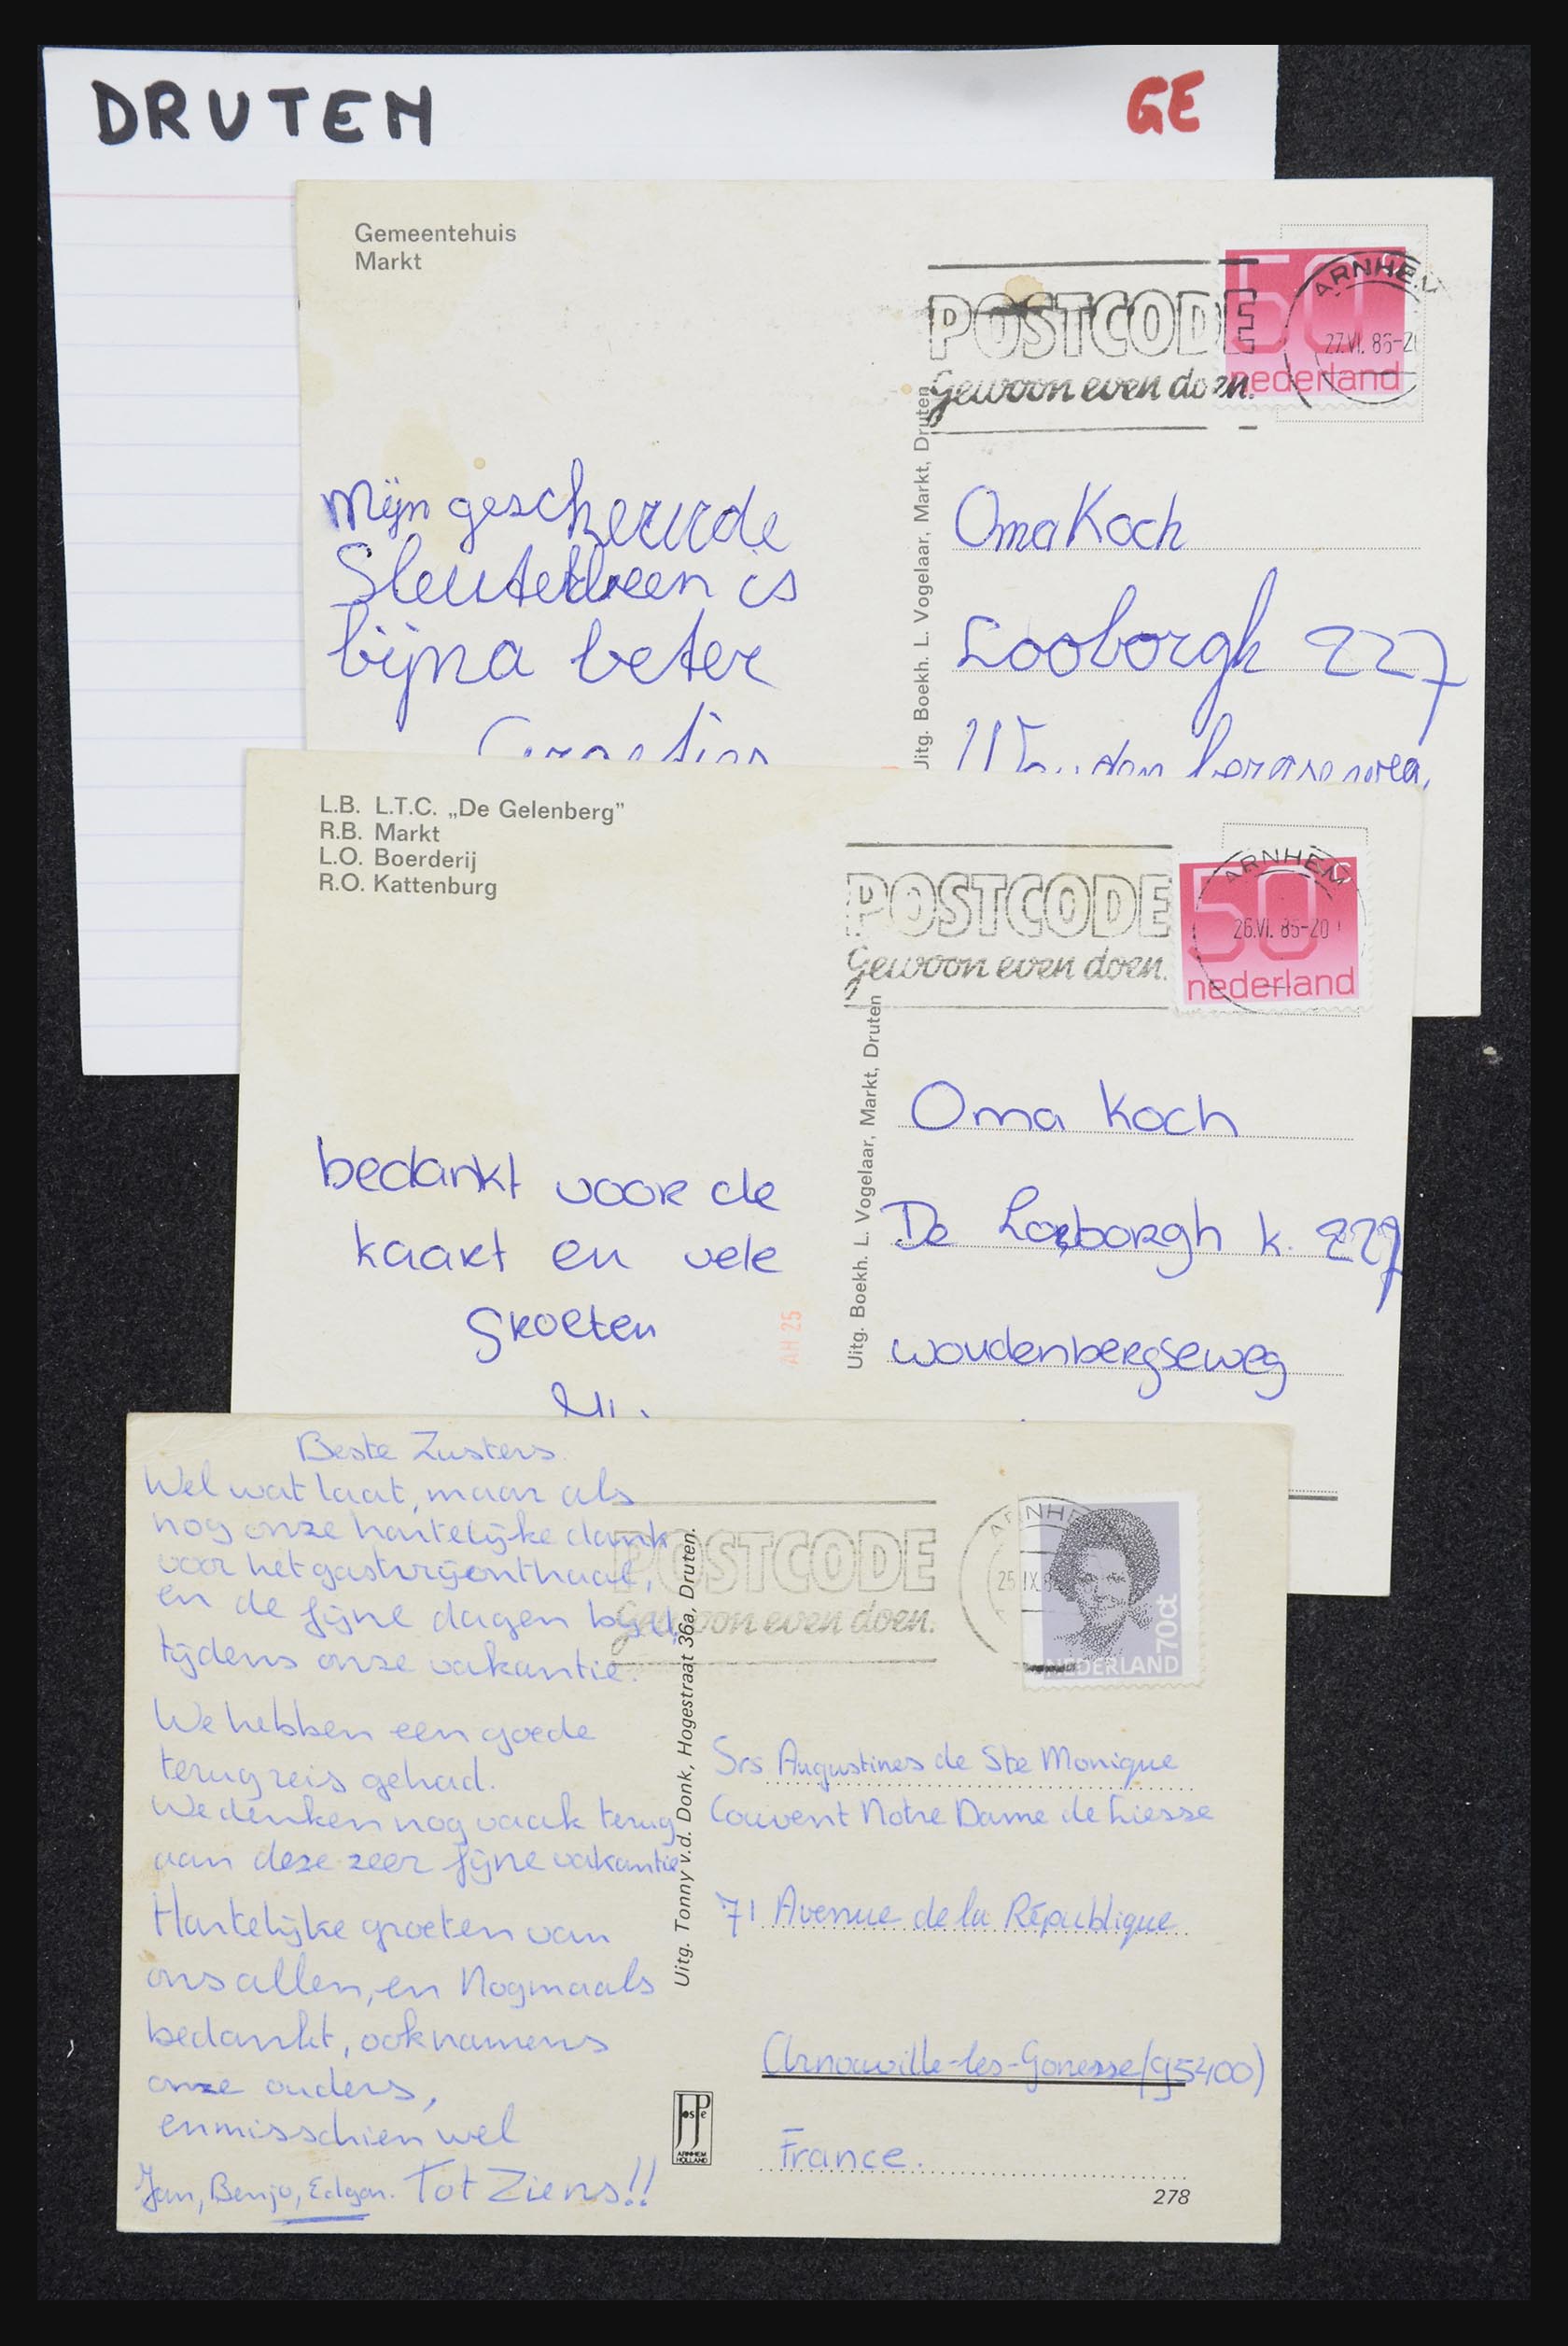 DRUTEN
GE
Gemeentehuis
Markt
POSTCODE
Gewoon even doen.
50
nederland
ARNHEM
27.VI. 85-20
Uitg. Boekh. L. Vogelaar, Markt, Druten
Mijn gescheurde
Sleutelbeen is
bijna beter
Oma Koch
Looborgh 227
L.B. L.T.C. „De Gelenberg”
R.B. Markt
L.O. Boerderij
R.O. Kattenburg
POSTCODE
Gewoon even doen.
50 c
nederland
ARNHEM
26.VI. 85-20
Uitg. Boekh. L. Vogelaar, Markt, Druten
bedankt voor de
kaart en vele
groeten
AH 25
Oma Koch
De Looborgh k. 227
woudenbergseweg
Beste Zusters.
Wel wat laat, maar als
nog onze hartelijke dank
voor het gastvrij onthaal,
en de fijne dagen bij U,
tijdens onze vakantie.
We hebben een goede
terugreis gehad.
We denken nog vaak terug
aan deze zeer fijne vakantie
Hartelijke groeten van
ons allen, en Nogmaals
bedankt, ook namens
onze ouders,
en misschien wel
Jan, Benjo, Edgar. Tot Ziens!!
POSTCODE
Gewoon even doen.
ARNHE
25 IX
70ct
NEDERLAND
Uitg. Tonny v.d. Donk, Hogestraat 36a, Druten.
Srs Augustines de Ste Monique
Couvent Notre Dame de Liesse
71 Avenue de la République
Arnouville-les-Gonesse (95400)
France.
JosPe
ARNHEM
HOLLAND
278